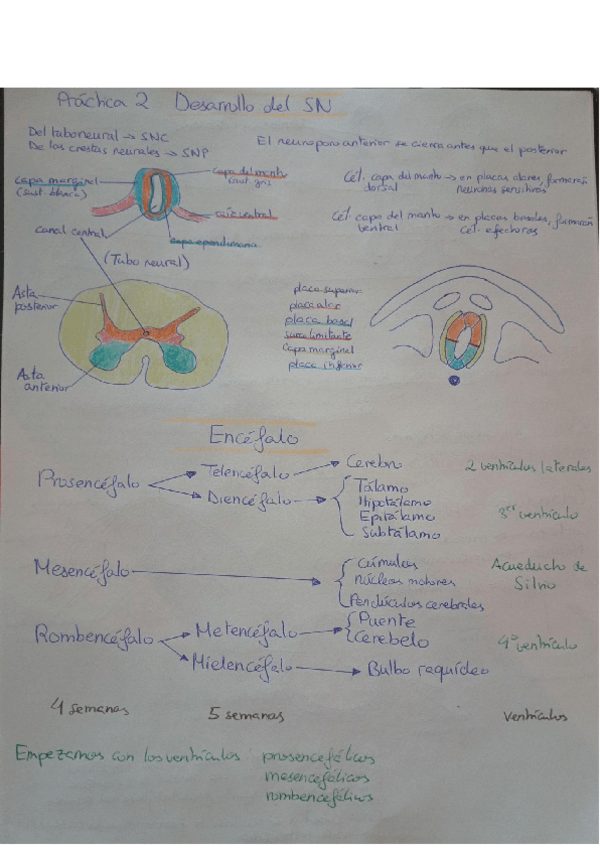 Práctica 2 Desarrollo del SN
Del tubo neural → SNC
De las crestas neurales → SNP
El neuroporo anterior se cierra antes que el posterior
capa marginal
(sust. blanca)
capa del manto
(sust. gris)
canal central
capa ependimaria
(Tubo neural)
Cél. capa del manto → en placas alares, formarán
dorsal neuronas sensitivas
Cél. capa del manto → en placas basales, formarán
ventral cél. efectoras
Asta
posterior
Asta
anterior
placa superior
placa alar
placa basal
surco limitante
capa marginal
placa inferior
Encéfalo
Prosencéfalo → Telencéfalo → Cerebro 2 ventrículos laterales
→ Diencéfalo → { Tálamo
Hipotálamo
Epitálamo
Subtálamo
3er ventrículo
Mesencéfalo → { Cúmulos
Núcleos motores
Pendúculos cerebrales
Acueducto de
Silvio
Rombencéfalo → Metencéfalo → { Puente
Cerebelo
4º ventrículo
→ Mielencéfalo → Bulbo raquídeo
4 semanas 5 semanas ventrículos
Empezamos con los ventrículos prosencefálicos
mesencefálicos
rombencefálicos